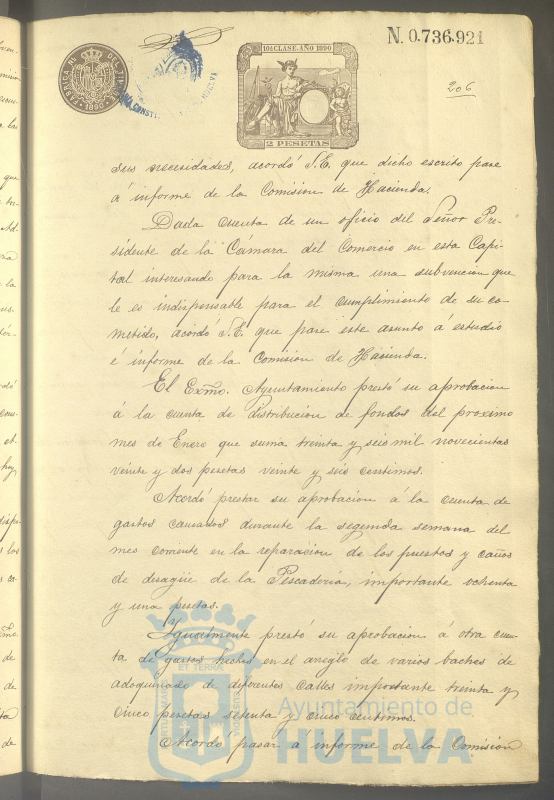 10ª CLASE.-AÑO 1890
N. 0.736.921
206
1890
2 PESETAS
sus necesidades, acordó S.E. que dicho escrito pase
á informe de la Comision de Hacienda.
Dada cuenta de un oficio del Señor Pre-
sidente de la Cámara del Comercio en esta Capi-
tal interesando para la misma una subvencion que
le es indispensable para el cumplimiento de su co-
metido, acordó S.E. que pase este asunto á estudio
é informe de la Comision de Hacienda.
El Exmo. Ayuntamiento prestó su aprobacion
á la cuenta de distribucion de fondos del proximo
mes de Enero que suma treinta y seis mil novecientas
veinte y dos pesetas veinte y seis centimos.
Acordó prestar su aprobacion á la cuenta de
gastos causados durante la segunda semana del
mes corriente en la reparacion de los puestos y caños
de desagüe de la Pescadería, importante ochenta
y una pesetas.
Ygualmente prestó su aprobacion á otra cuen-
ta de gastos hechos en el arreglo de varios baches de
adoquinado de diferentes calles importante treinta y
cinco pesetas setenta y cinco centimos.
Acordó pasar á informe de la Comision
Ayuntamiento de
HUELVA